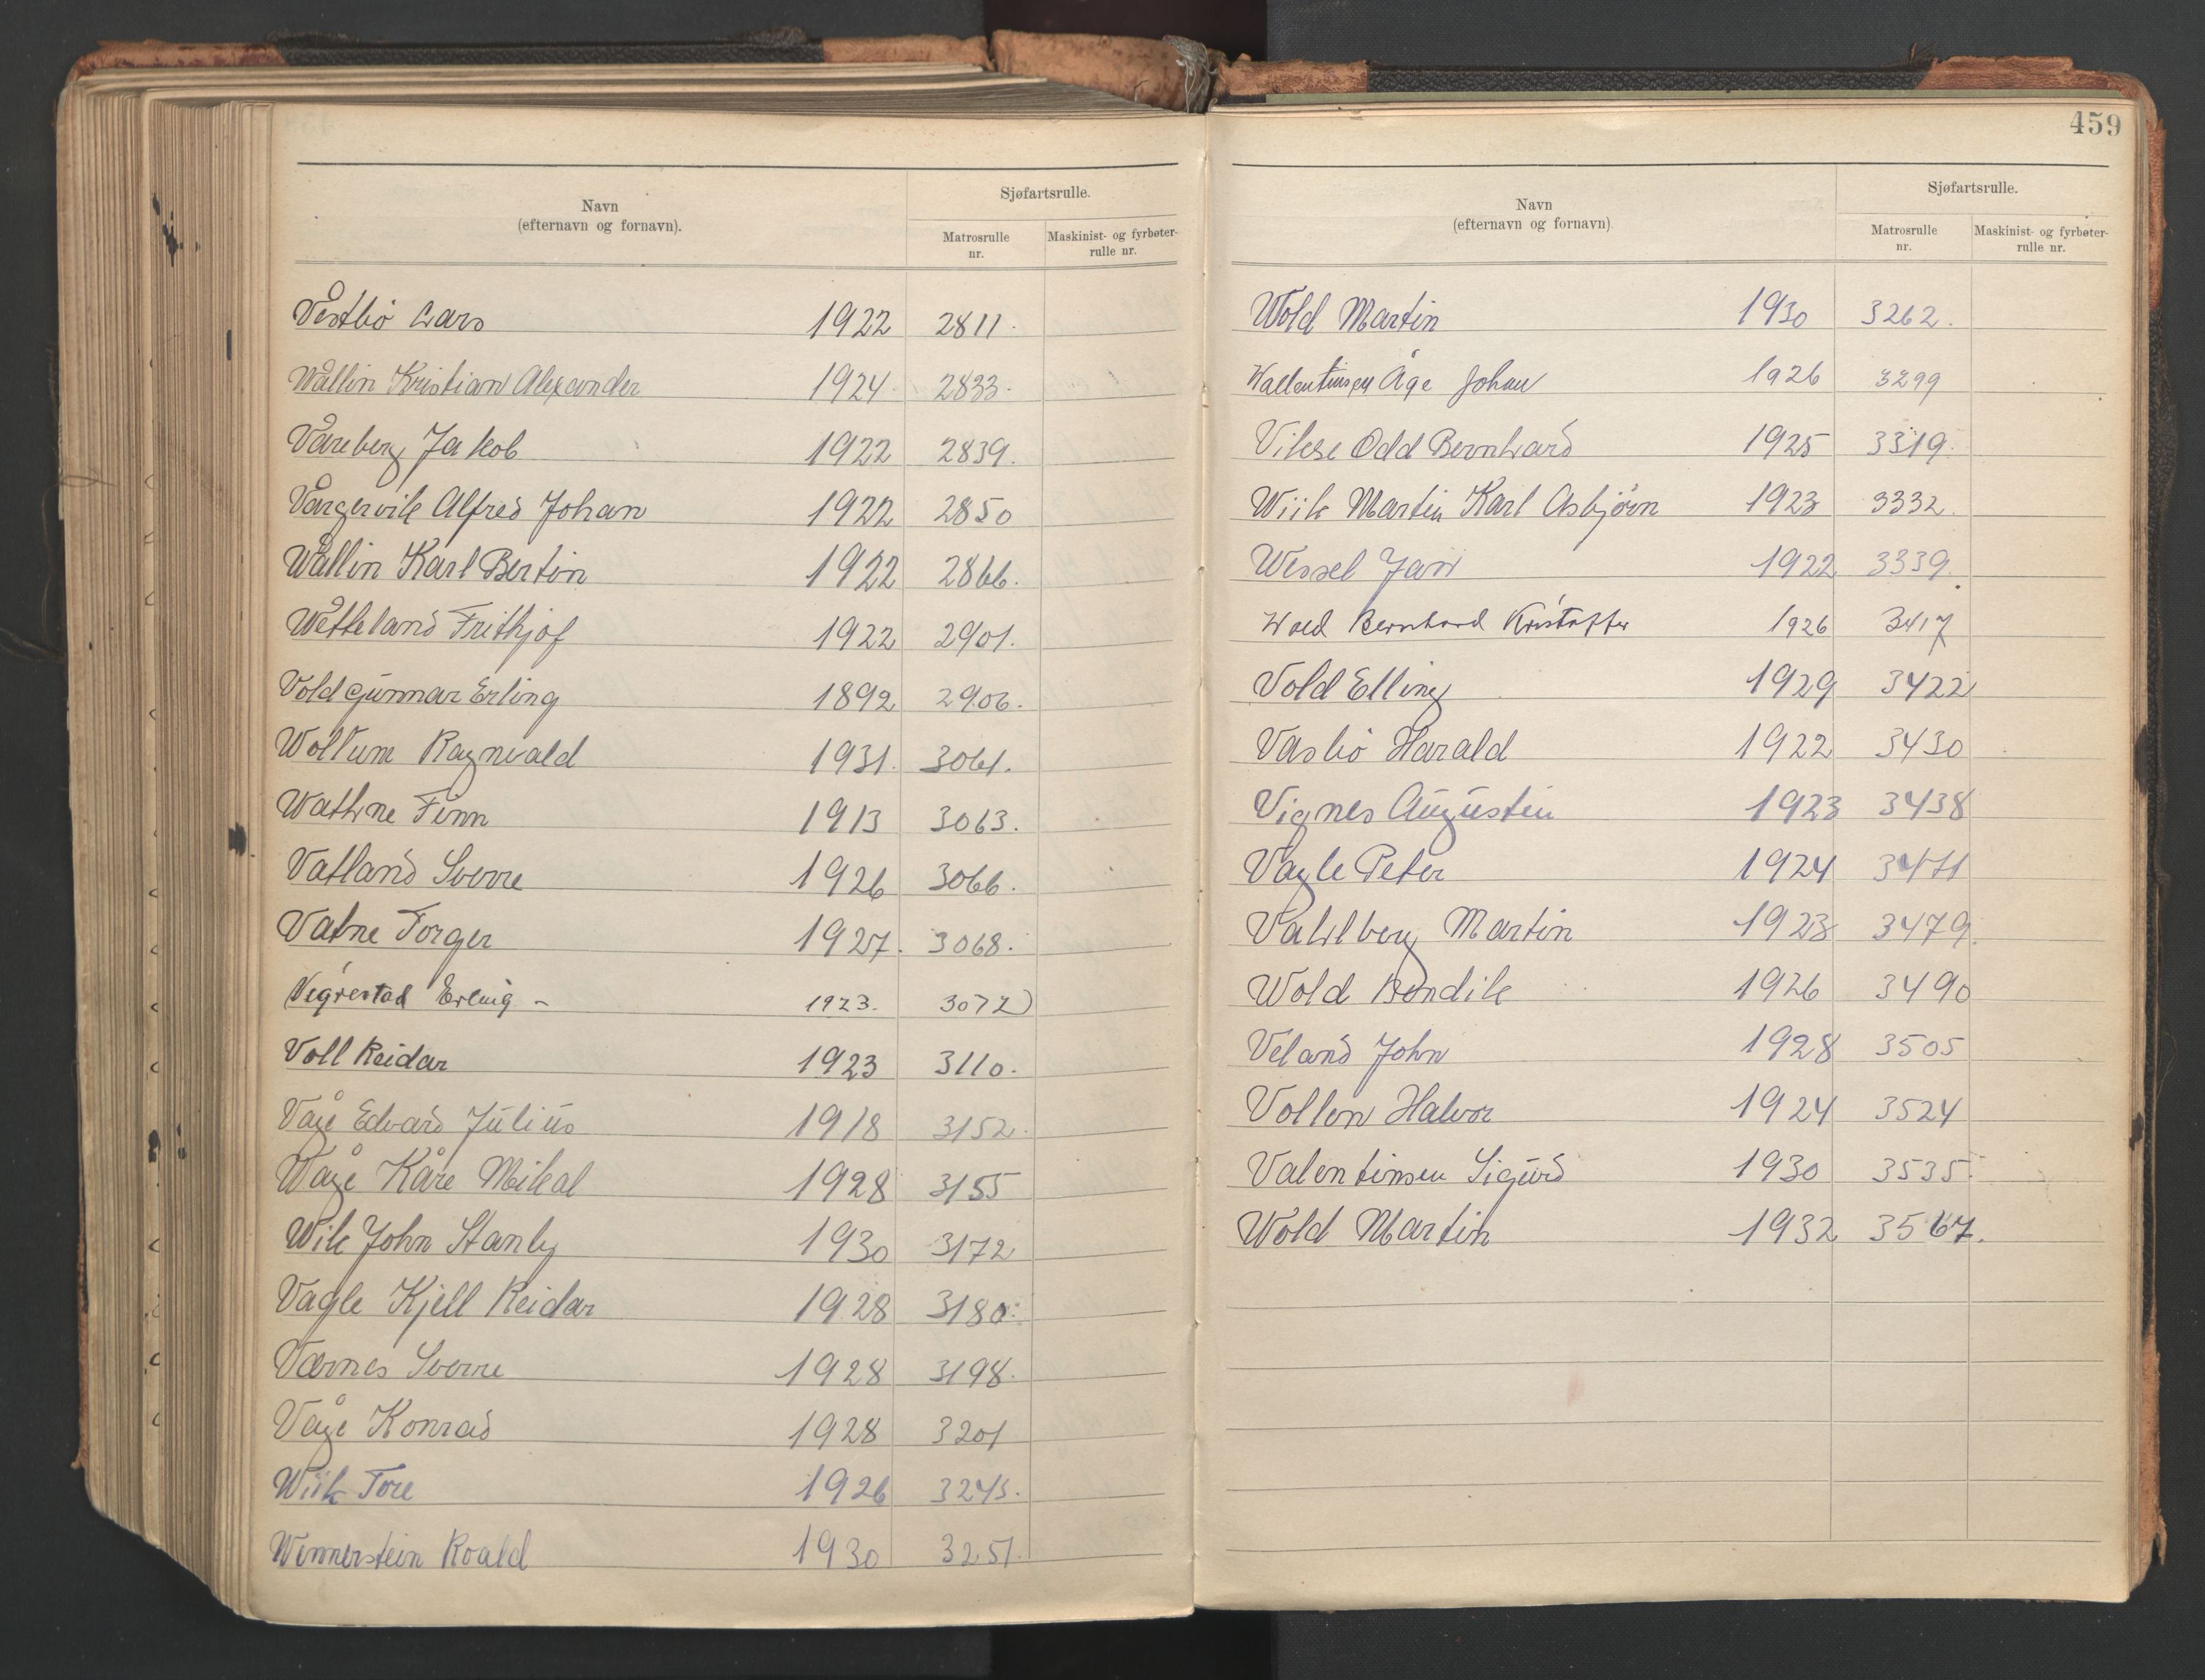 Navn
(efternavn og fornavn).
Sjøfartsrulle.
Matrosrulle nr.
Maskinist- og fyrbøter-rulle nr.
Vestbø Lars 1922 2811.
Wallin Kristian Alexander 1924 2833.
Vareberg Jakob 1922 2839.
Vargervik Alfred Johan 1922 2850
Wallin Karl Bertin 1922 2866.
Wetteland Frithjof 1922 2901.
Vold Gunnar Erling 1892 2906.
Wollum Ragnvald 1931. 3061.
Wathne Finn 1913 3063.
Vatland Sverre 1926 3066.
Vatne Torger 1927. 3068.
Vegrestad Erling - 1923. 3072
Voll Reidar 1923 3110.
Våge Edvard Julius 1918 3152.
Våge Kåre Mikal 1928 3155
Wik John Stanly 1930 3172
Vagle Kjell Reidar 1928 3180.
Værnes Sverre 1928 3198.
Våge Konrad 1928 3201
Wiik Tore 1926 3245.
Winnerstein Roald 1930 3251.
459
Navn
(efternavn og fornavn)
Sjøfartsrulle.
Matrosrulle nr.
Maskinist- og fyrbøter-rulle nr.
Wold Martin 1930 3262.
Wallentinsen Åge Johan 1926 3299
Vikse Odd Bernhard 1925 3319.
Wiik Martin Karl Asbjörn 1923 3332.
Wessel Jan 1922 3339.
Wold Bernhard Kristoffer 1926 3417
Vold Elling 1929 3422
Vasbø Harald 1922 3430
Vignes Augustin 1923 3438
Vagle Peter 1924 3471
Vahlberg Martin 1923 3479.
Wold Bendik 1926 3490
Veland John 1928 3505
Vollen Halvor 1924 3524
Valentinsen Sigurd 1930 3535.
Wold Martin 1932 3567.